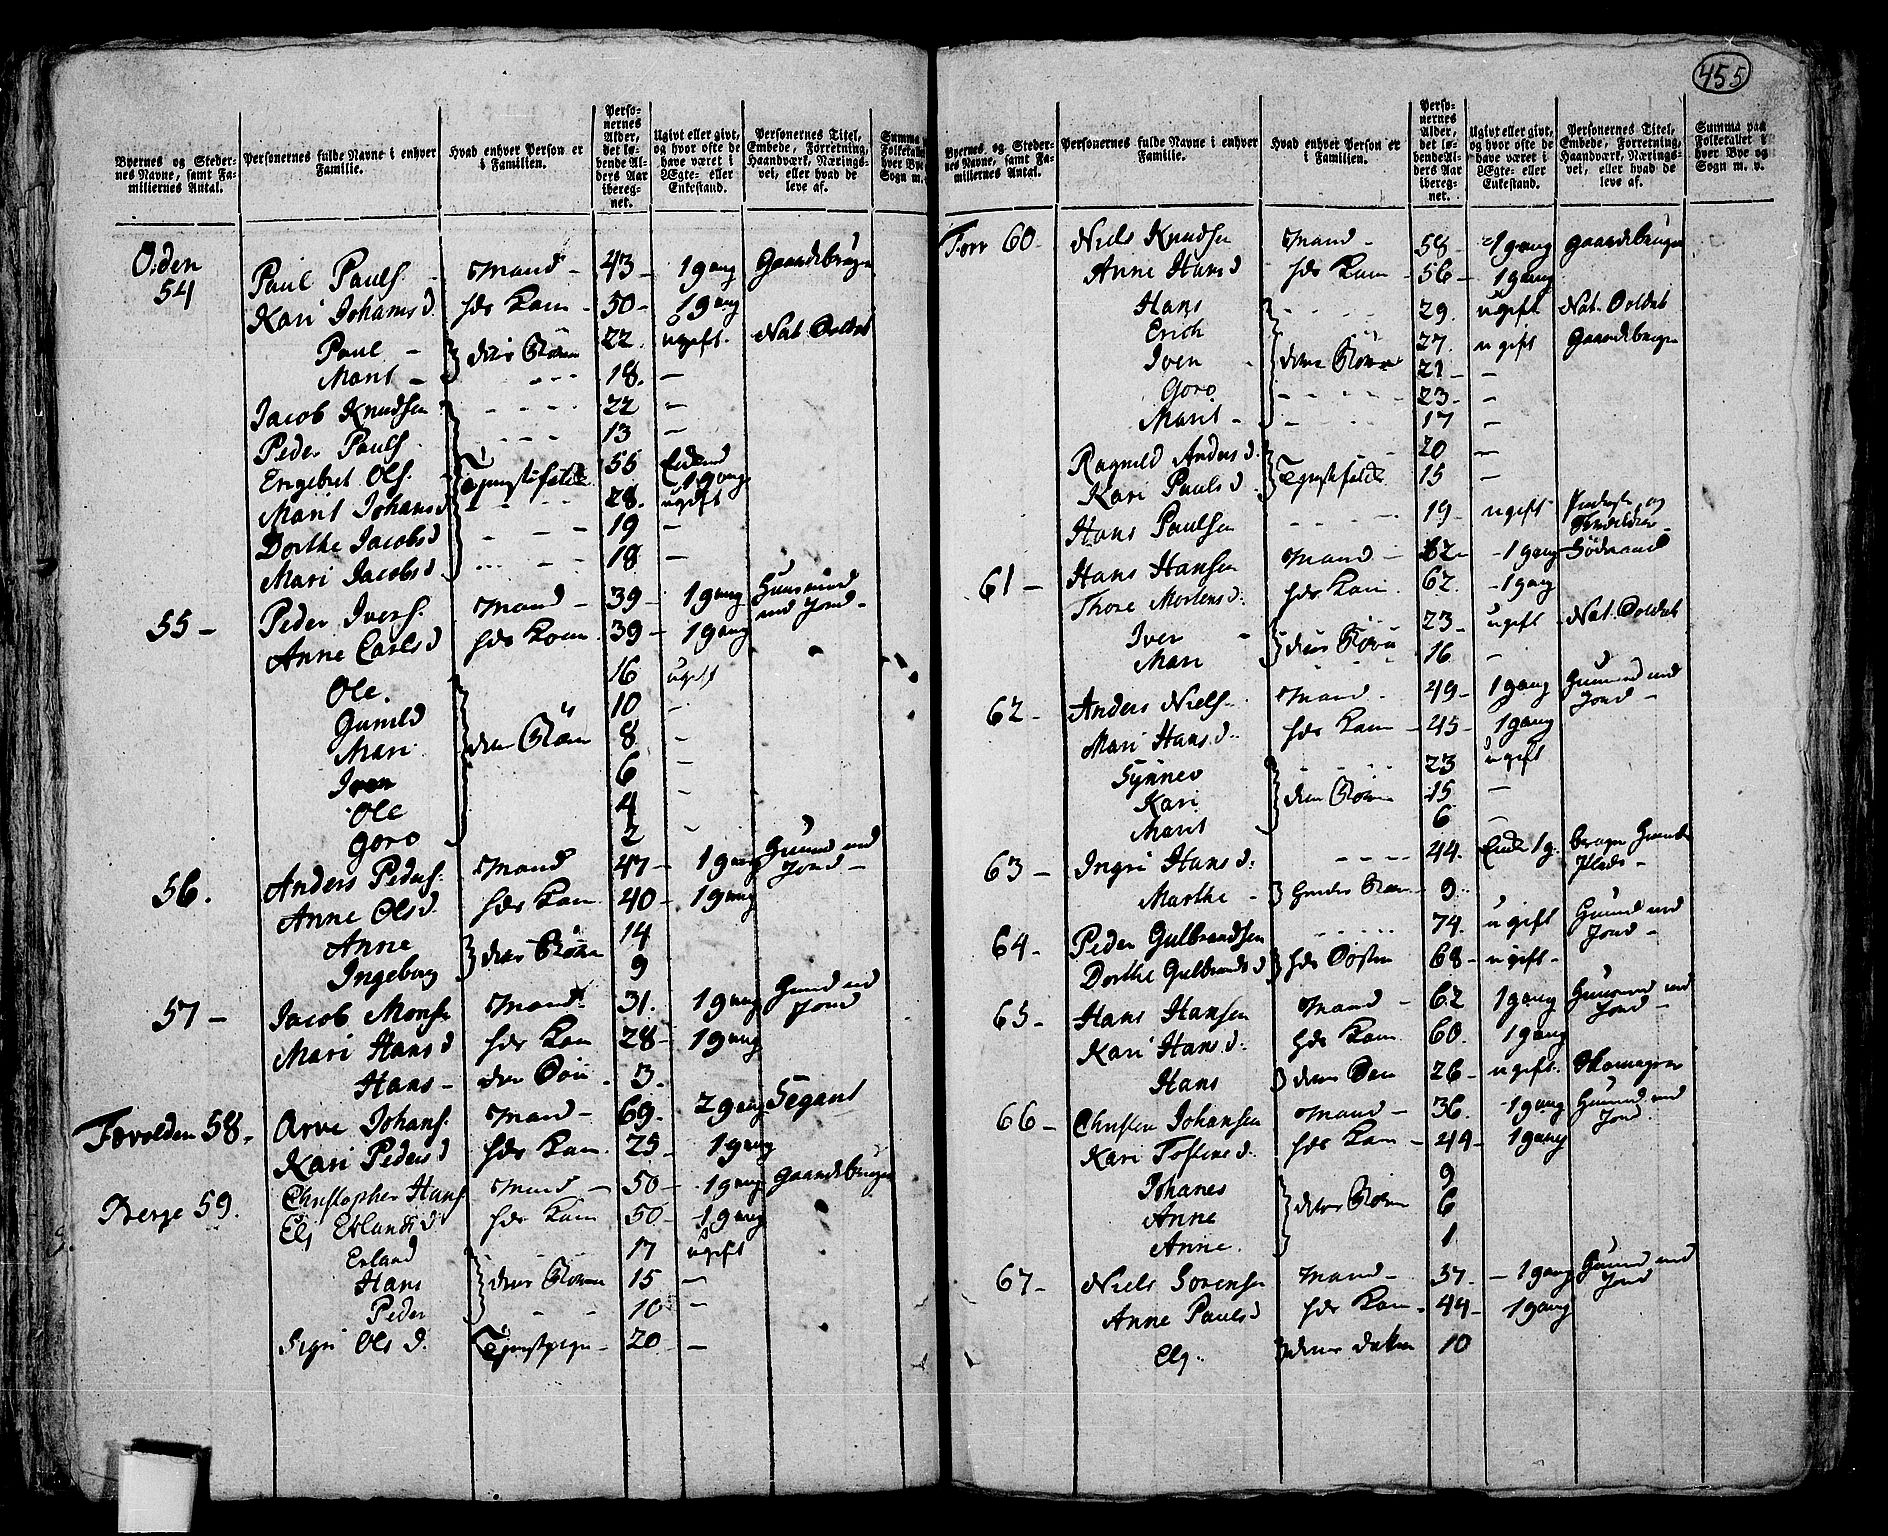 455
Byernes og Steder-nes Navne, samt Fa-miliernes Antal. | Personernes fulde Navne i enhver Familie. | Hvad enhver Person er i Familien. | Perso-nernes Alder, det lø-bende Al-ders Aar ibereg-net. | Ugivt eller givt, og hvor ofte de have været i Ægte- eller Enkestand. | Personernes Titel, Embede, Forretning, Haandværk, Nærings-vei, eller hvad de leve af. | Summa Folketallet hver Bye Sogn m.
Oiden 54 Paul Pauls. Mand 43 1 gang Gaardebruger
Kari Johans d. hds Kone 50 1 gang
Paul deres Børn 22 ugift Nat. Soldat
Marit 18. —
Jacob Knudsen 22 —
Peder Pauls. 13 —
Engebret Ols. Tjenstefolk 55 1 gang
Marit Johans d 28. ugift
Dorthe Jacobs d 19 —
Mari Jacobs d 18 —
55 Peder Ivers. Mand 39 1 gang Huusmand med Jord
Anne Carls d hds Kone 39 1 gang
Ole. 16 ugift
Gunild 10
Mari deres Børn 8
Iver 6
Ole 4
Goro 2
56. Anders Peders. Mand 47 1 gang Huusmd med Jord
Anne Ols d. hds Kone 40 1 gang
Anne deres Børn 14
Ingeborg 9
57 Jacob Monsen Mand 31. 1 gang Huusmd med Jord
Mari Hans d hds Kone 28 1 gang
Hans deres Søn 3.
Forvolden 58. Arve Johans. Mand 69. 2 gang Leganl
Kari Peders d hds Kone 25 1 gang
Berge 59. Christopher Hans. Mand 50 1 gang Gaardebruger
Elj Erlands d. hds Kone 50 1 gang
Erland 17 ugift
Hans deres Børn 15 —
Peder 10 —
Sigri Ols d. Tjenstpige 20 —
Byernes og Steder-nes Navne, samt Fa-miliernes Antal. | Personernes fulde Navne i enhver Familie. | Hvad enhver Person er i Familien. | Perso-nernes Alder, det lø-bende Al-ders Aar ibereg-net. | Ugivt eller givt, og hvor ofte de have været i Ægte- eller Enkestand. | Personernes Titel, Embede, Forretning, Haandværk, Nærings-vei, eller hvad de leve af. | Summa paa Folketallet i hver Bye og Sogn m. v.
Forr 60 Niels Knudsen Mand 58 1 gang Gaardebruger
Anne Hans d hds Kone 56 1 gang
Hans 29. ugift Nat. Soldat
Erich 27. ugift Gaardebruger
Iver deres Børn 21 —
Goro 23 —
Marit 17 —
Ragnild Anders d. 20 —
Kari Pauls d. Tjenstefolk 15 —
Hans Paulsen 19 ugift
61 Hans Hansen Mand 62 1 gang Fødraad
Thore Mortens d. hds Kone 62. 1 gang
Iver deres Børn 23 ugift Nat. Soldat
Mari 16 —
62 Anders Niels. Mand 49 1 gang Huusmd med Jord
Mari Hans d. hds Kone 45 1 gang
Synnev 23 ugift
Kari deres Børn 15 —
Marit 6 —
63 Ingri Hans d. 44. Enke 1 g. bruger Huusm. Plads
Marthe hendes Barn 9
64 Peder Gulbrandsen 74. ugift Huusmd med Jord
Dorthe Gulbrands d hds Søster 68 ugift
65 Hans Hansen Mand 62 1 gang Huusmd med Jord
Kari Hans d. hds Kone 60. 1 gang
Hans deres Søn 26 ugift Skomager
66 Christen Johansen Mand 36. 1 gang Huusmd med Jord
Kari Tostens d. hds Kone 44 1 gang
Johanes 9
Anne deres Børn 6
Anne. 1
67 Niels Sorensen Mand 37. 1 gang Huusmd med Jord
Anne Pauls d hds Kone 44 1 gang
Elj. deres datter 10